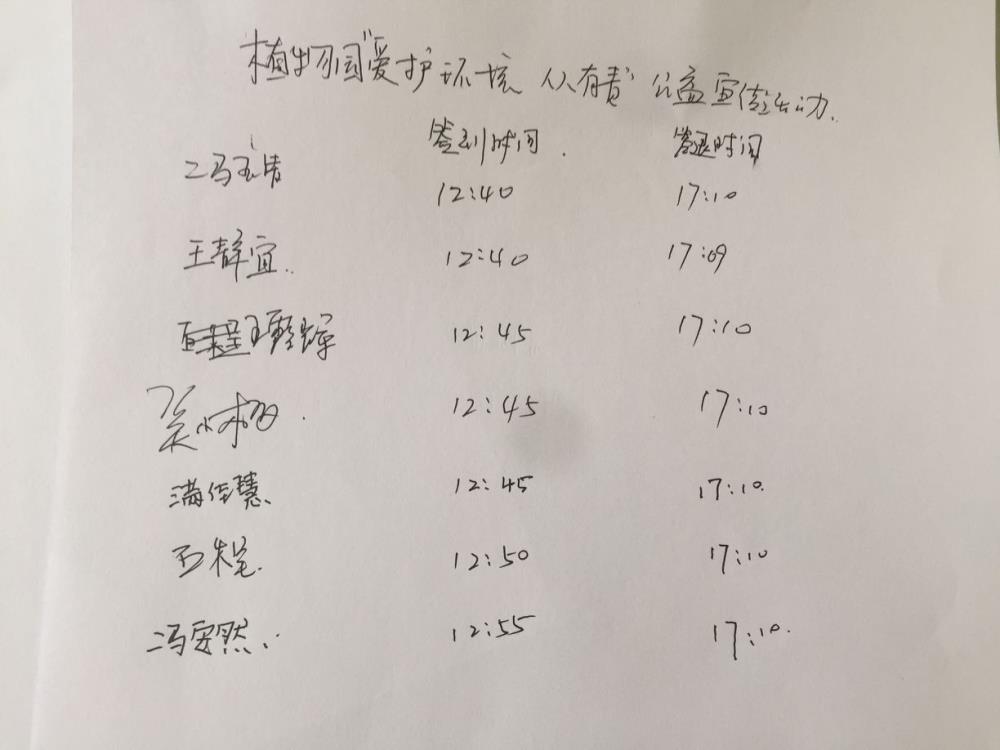 植物园"爱护环境 从有责"公益宣传活动.
签到时间. 签退时间
冯玉洁 12:40 17:10
王静宜. 12:40 17:09
12:45 17:10
12:45 17:10
满佳慧. 12:45 17:10.
12:50 17:10
冯安然. 12:55 17:10.